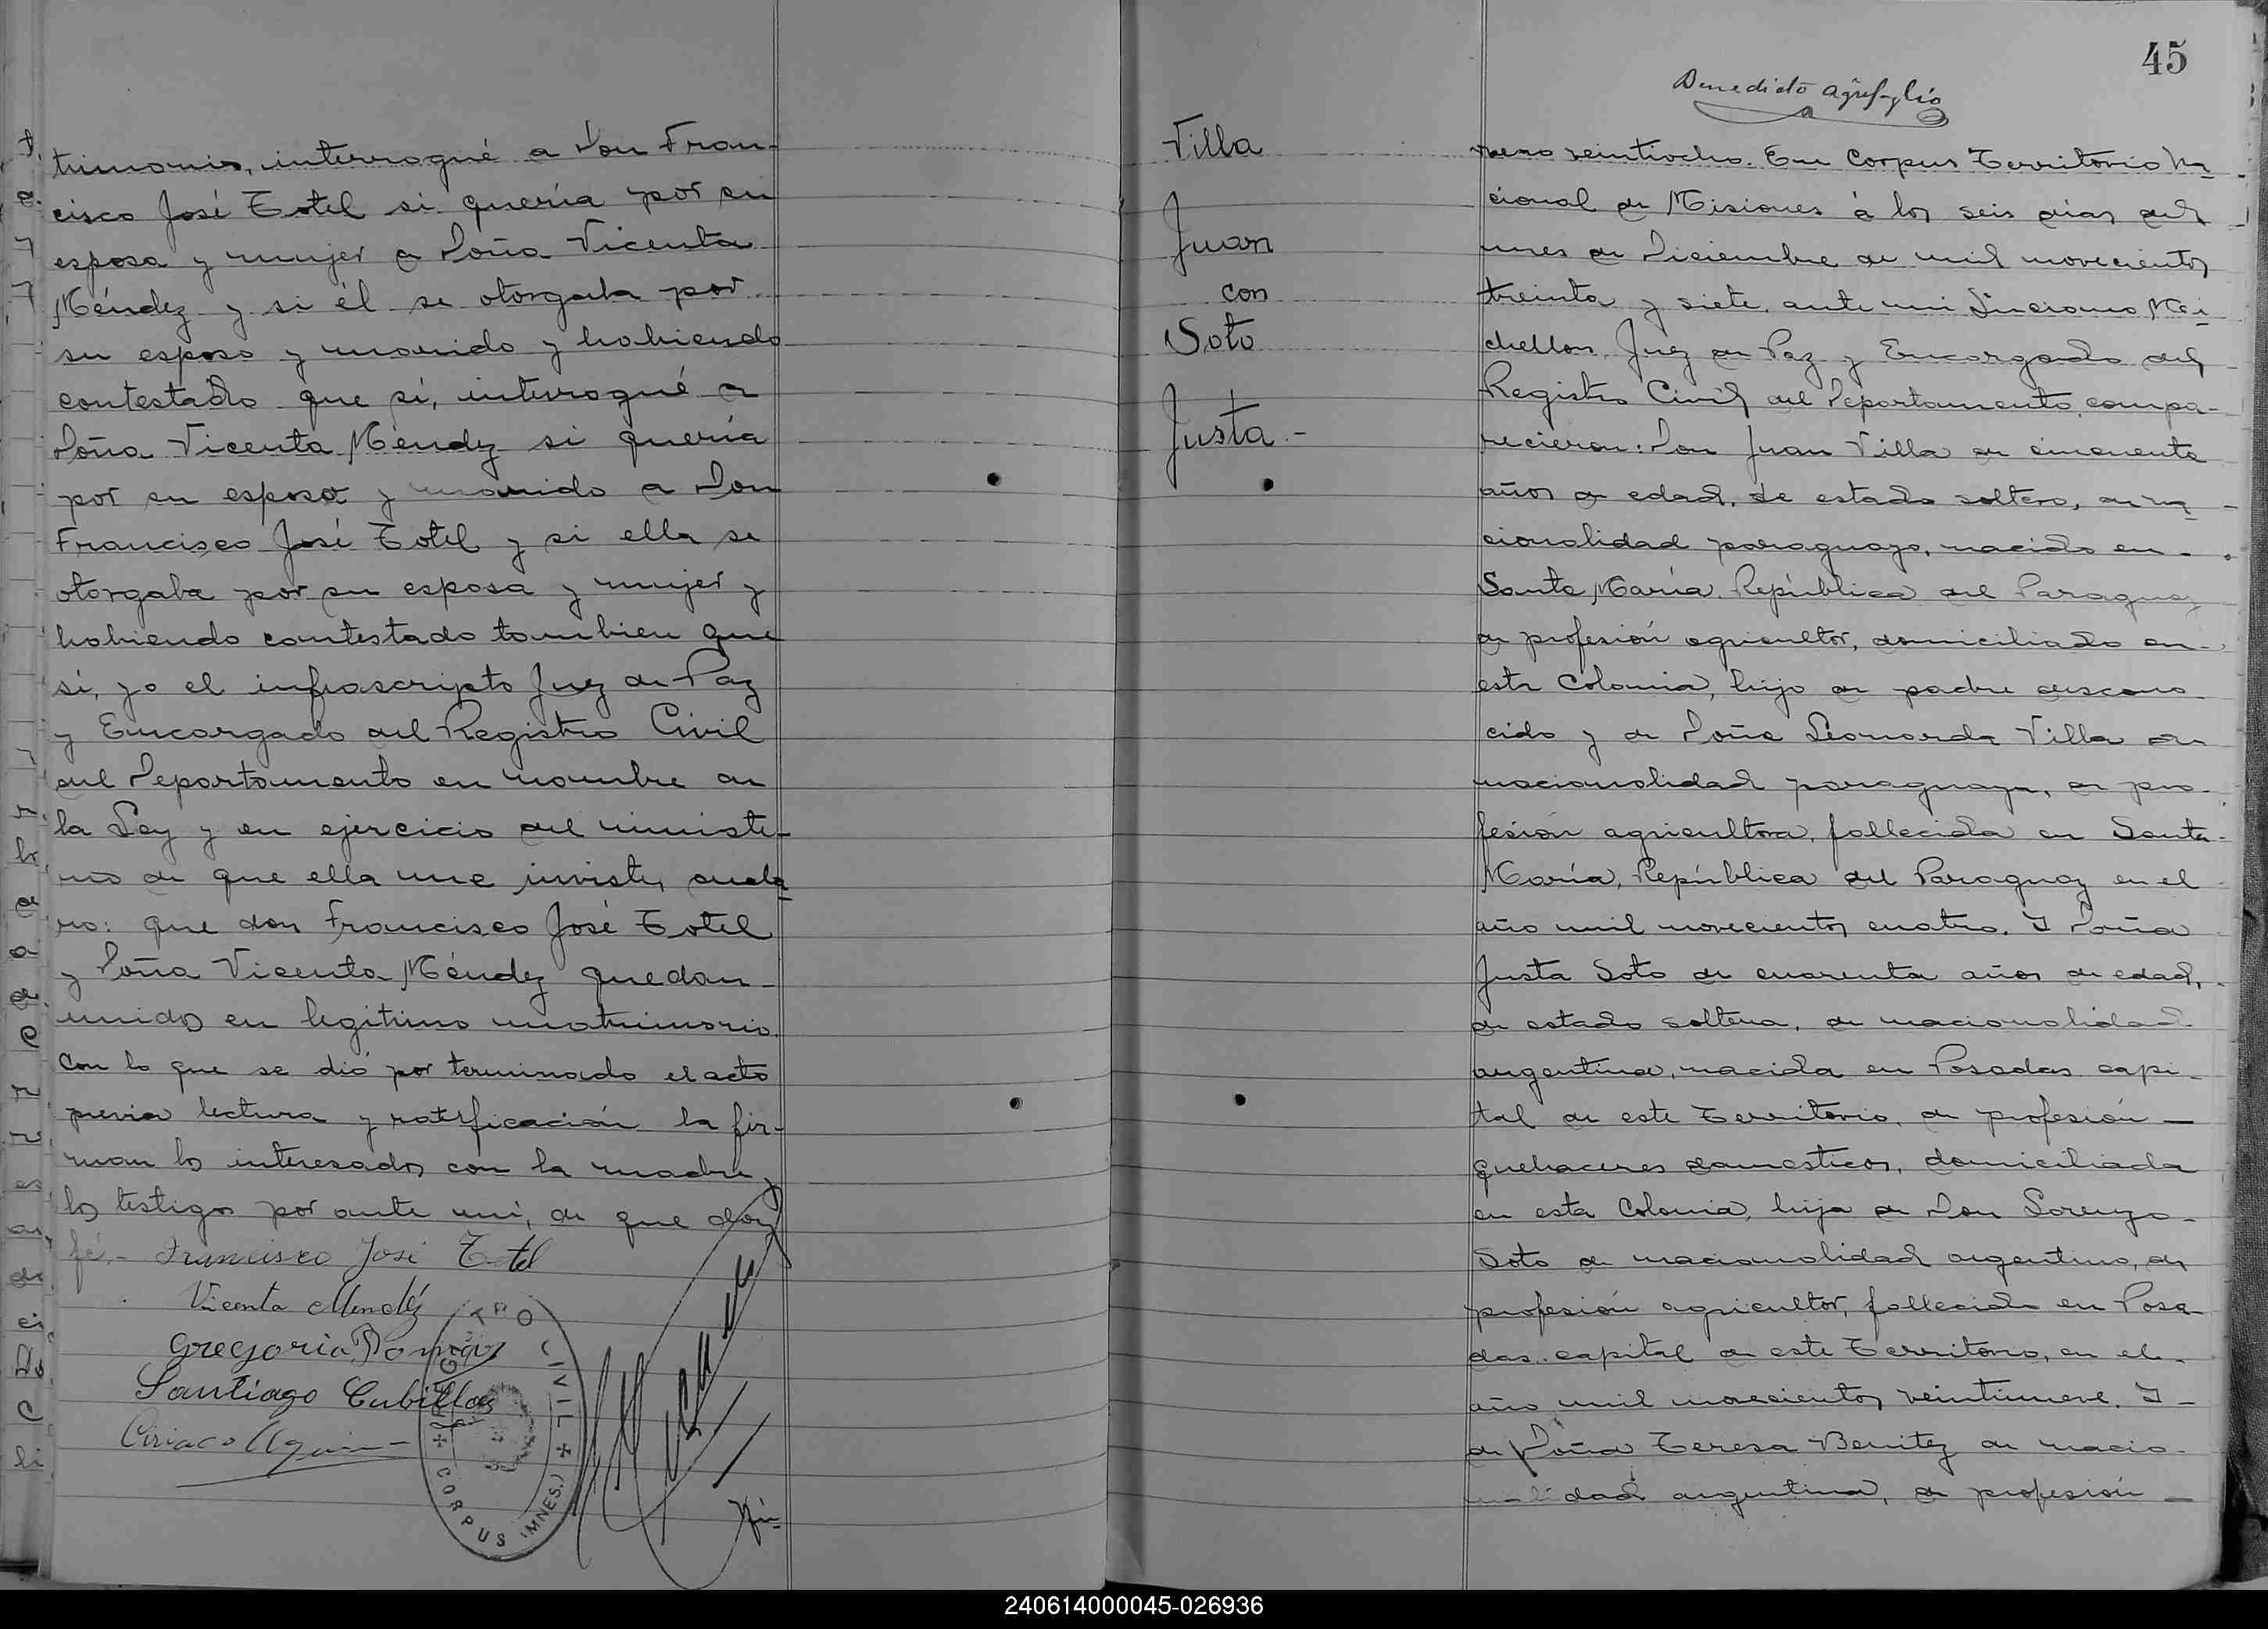 trimonio, interrogué a Don Fran-
cisco José Totel si quería por su
esposa y mujer a Doña Vicenta
Méndez y si él se otorgaba por
su esposo y marido y habiendo
contestado que sí, interrogué a
Doña Vicenta Méndez si quería
por su esposo y marido a Don
Francisco José Totel y si ella se
otorgaba por su esposa y mujer y
habiendo contestado tambien que
sí, yo el infrascripto Juez de Paz
y Encargado del Registro Civil
del Departamento en nombre de
la Ley y en ejercicio del ministe-
rio de que ella me inviste, decla
ro: que don Francisco José Totel
y Doña Vicenta Méndez quedan
unidos en legítimo matrimonio.
Con lo que se dió por terminado el acto
previa lectura y ratificación la fir-
man los interesados con la madre y
los testigos por ante mí, de que doy
fé.- Francisco José Totel
Vicenta Mendéz
Gregoria
Santiago Cubillas
Ciriaco
REGISTRO CIVIL
CORPUS (MNES.)
45
Benedicto
Villa
Juan
con
Soto
Justa.-
mero veintiocho. En Corpus Territorio Na
cional de Misiones á los seis días del
mes de Diciembre de mil novecientos
treinta y siete, ante mi
Juez de Paz y Encargado del
Registro Civil del Departamento, compa-
recieron: Don Juan Villa de cincuenta
años de edad, de estado soltero, de na
cionalidad paraguayo, nacido en
Santa María República del Paraguay,
de profesión agricultor, domiciliado en
esta Colonia, hijo de padre descono
cido y de Doña Leonarda Villa de
nacionalidad paraguaya, de pro-
fesión agricultora, fallecida en Santa
María, República del Paraguay en el
año mil novecientos cuatro. Y Doña
Justa Soto de cuarenta años de edad,
de estado soltera, de nacionalidad
argentina, nacida en Posadas capi-
tal de este Territorio, de profesión
quehaceres domesticos, domiciliada
en esta Colonia, hija de Don Lorenzo
Soto de nacionalidad argentino, de
profesión agricultor, fallecido en Posa
das capital de este Territorio, en el
año mil novecientos veintinueve. Y
de Doña Teresa Benitez de nacio-
nalidad argentina, de profesión
240614000045-026936